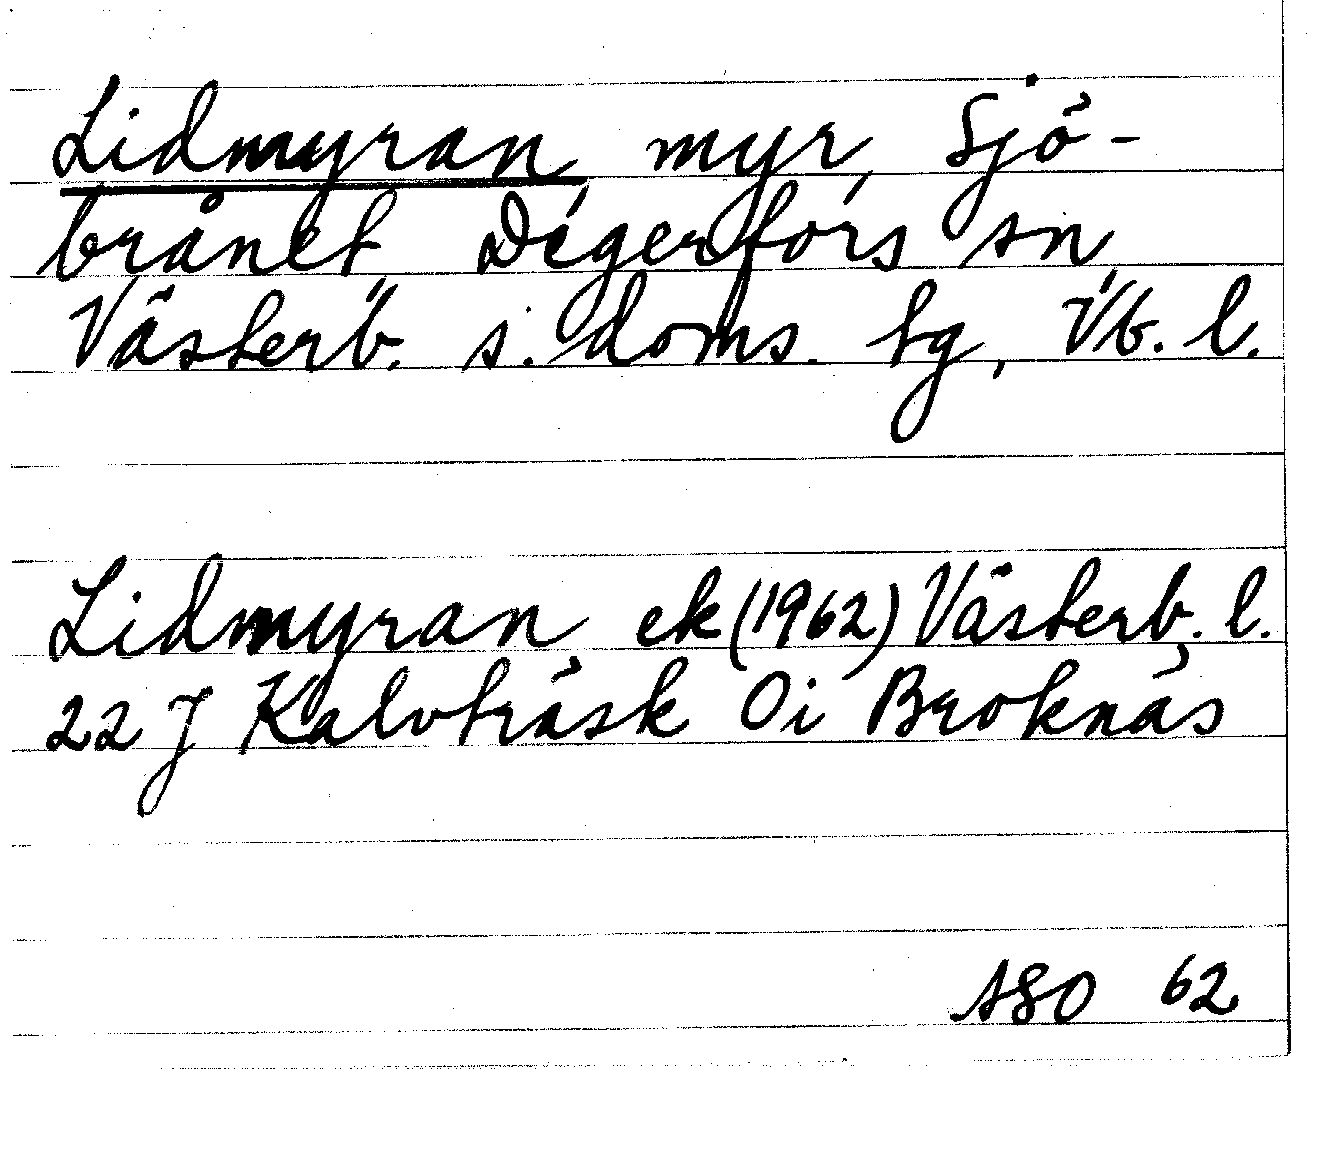 Lidmyran, myr, Sjö-
brånet, Degerfors sn,
Västerb. s. doms. tg, Vb. l.
Lidmyran ek (1962) Västerb. l.
22 J Kalvträsk Oi Broknäs
ASO 62